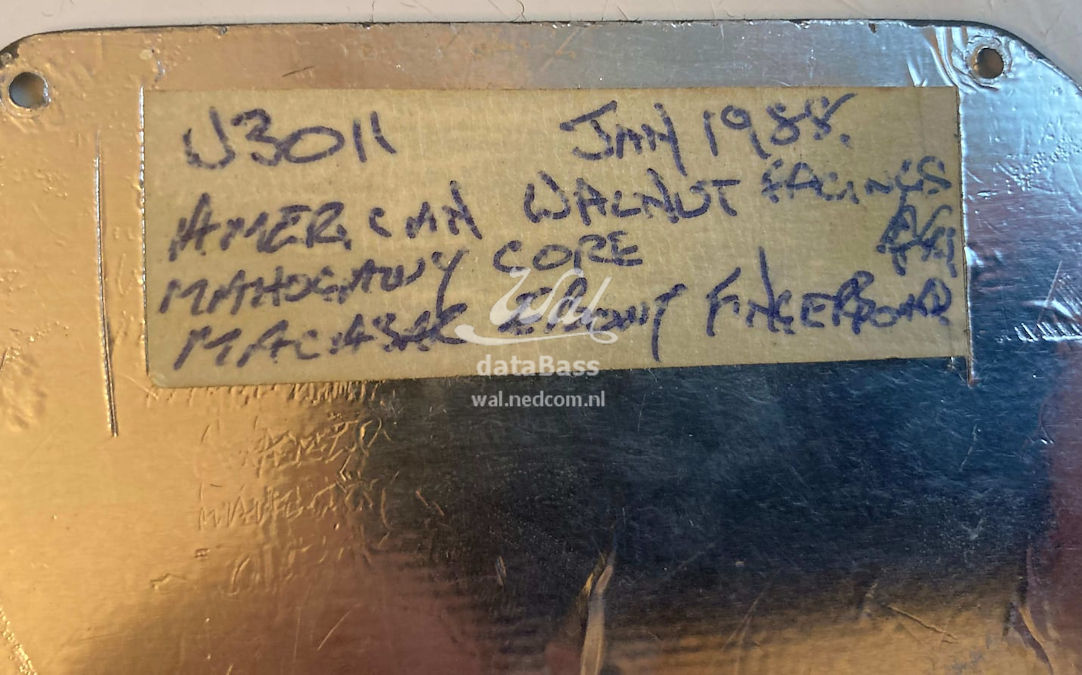 W3011 JAN 1988.
AMERICAN WALNUT FACINGS
MAHOGANY CORE
MACASAR EBONY FINGERBOARD
Wal
dataBass
wal.nedcom.nl